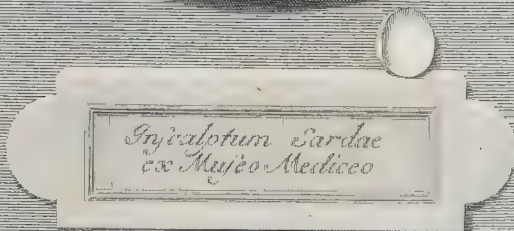 Insculptum Sardae
ex Museo Mediceo